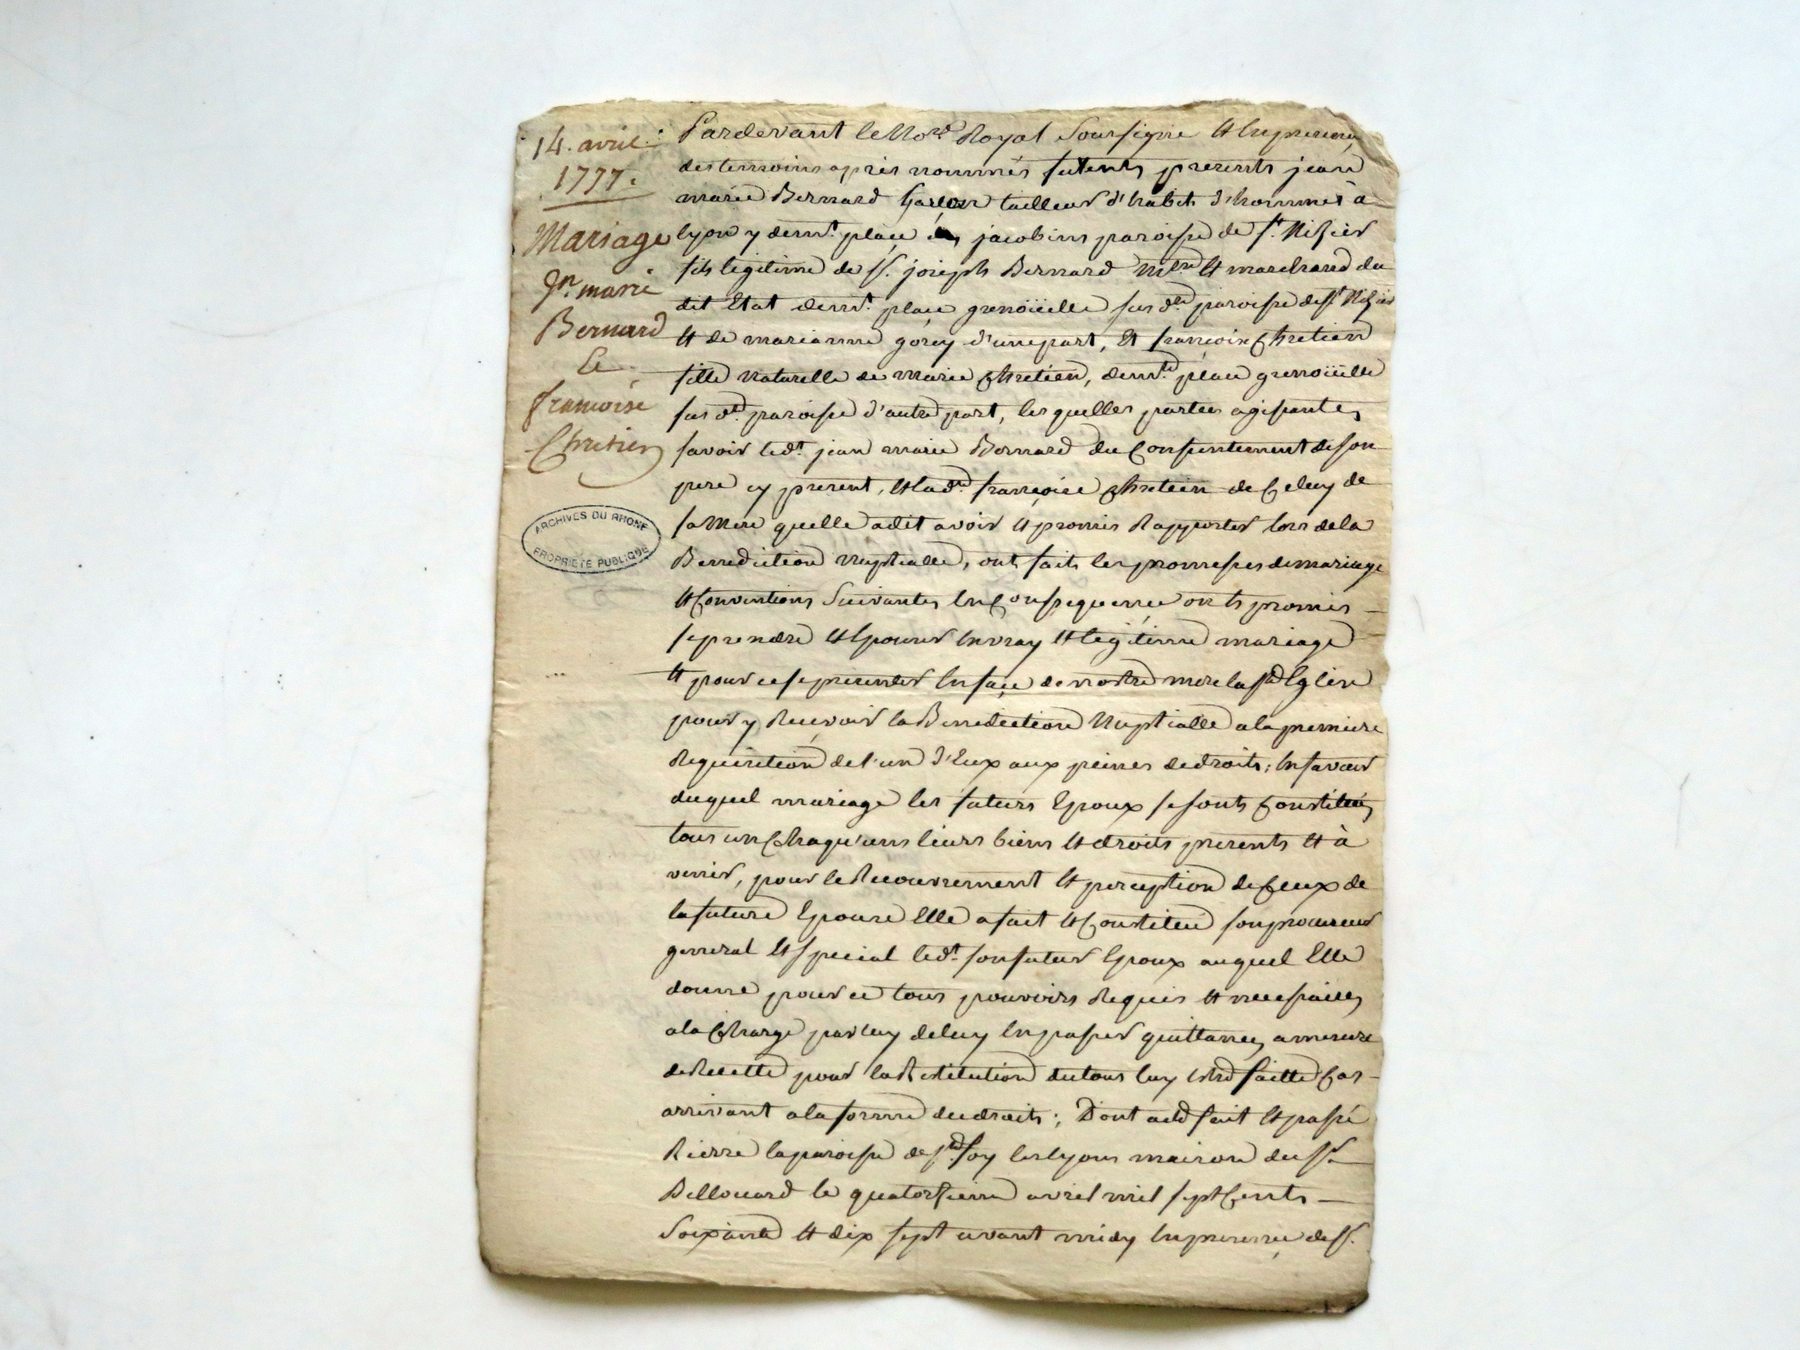 14. avril
1777.
Mariage
Jn. marie
Bernard
Et
francoise
Chretien
ARCHIVES DU RHONE
PROPRIETE PUBLIQUE
Pardevant le No.re Royal Soussigné Et En presence
des temoins apres nommés futents presents jean
marie Bernard Garçon tailleur d'habits d'hommes à
lyon y demt. place des jacobins paroisse de St. Nizier
fils legitime de Sr. joseph Bernard Mtre Et marchand du
dit Etat demt. place grenoüille susd.te paroisse de St Nizier
Et de marianne gorey d'une part, Et françoise Chretien
fille naturelle de marie Chretien, demt.e place grenoüille
susd.te paroisse d'autre part, les quelles parties agissantes
savoir led.t jean marie Bernard du Consentement de son
pere cy present, Et lad.te françoise Chretien de Celuy de
sa Mere quelle a dit avoir Et promis Rapporter lors de la
Benediction Nuptialle, ont faits les promesses de mariage
Et Conventions Suivantes En Consequence onts promis
se prendre Et Epouser En vray Et legitime mariage
Et pour ce se presenter En face de nostre mere la Ste Eglise
pour y Recevoir la Benediction Nuptialle a la premiere
Requisition de l'un d'Eux aux peines de droits; En faveur
duquel mariage les futurs Epoux se sonts Constitués
tous un Chaqu'uns leurs biens Et droits presents Et à
venir, pour le Recouvrement Et perception de Ceux de
la future Epouse Elle a fait Et Constitué son procureur
general Et special led.t son futur Epoux auquel Elle
donne pour ce tous pouvoirs Requis Et necessaires
a la Charge par luy de luy En passer quittances a mesure
de Recette pour la Restitution du tous luy Etre faitte Cas
arrivant a la forme du droits; Dont acte fait Et passé
Rierre la paroisse de Ste foy les lyons maison du Sr.
Billouard le quatorzieme avril mil sept Cents
Soixante Et dix sept avant midy En presence de Sr.